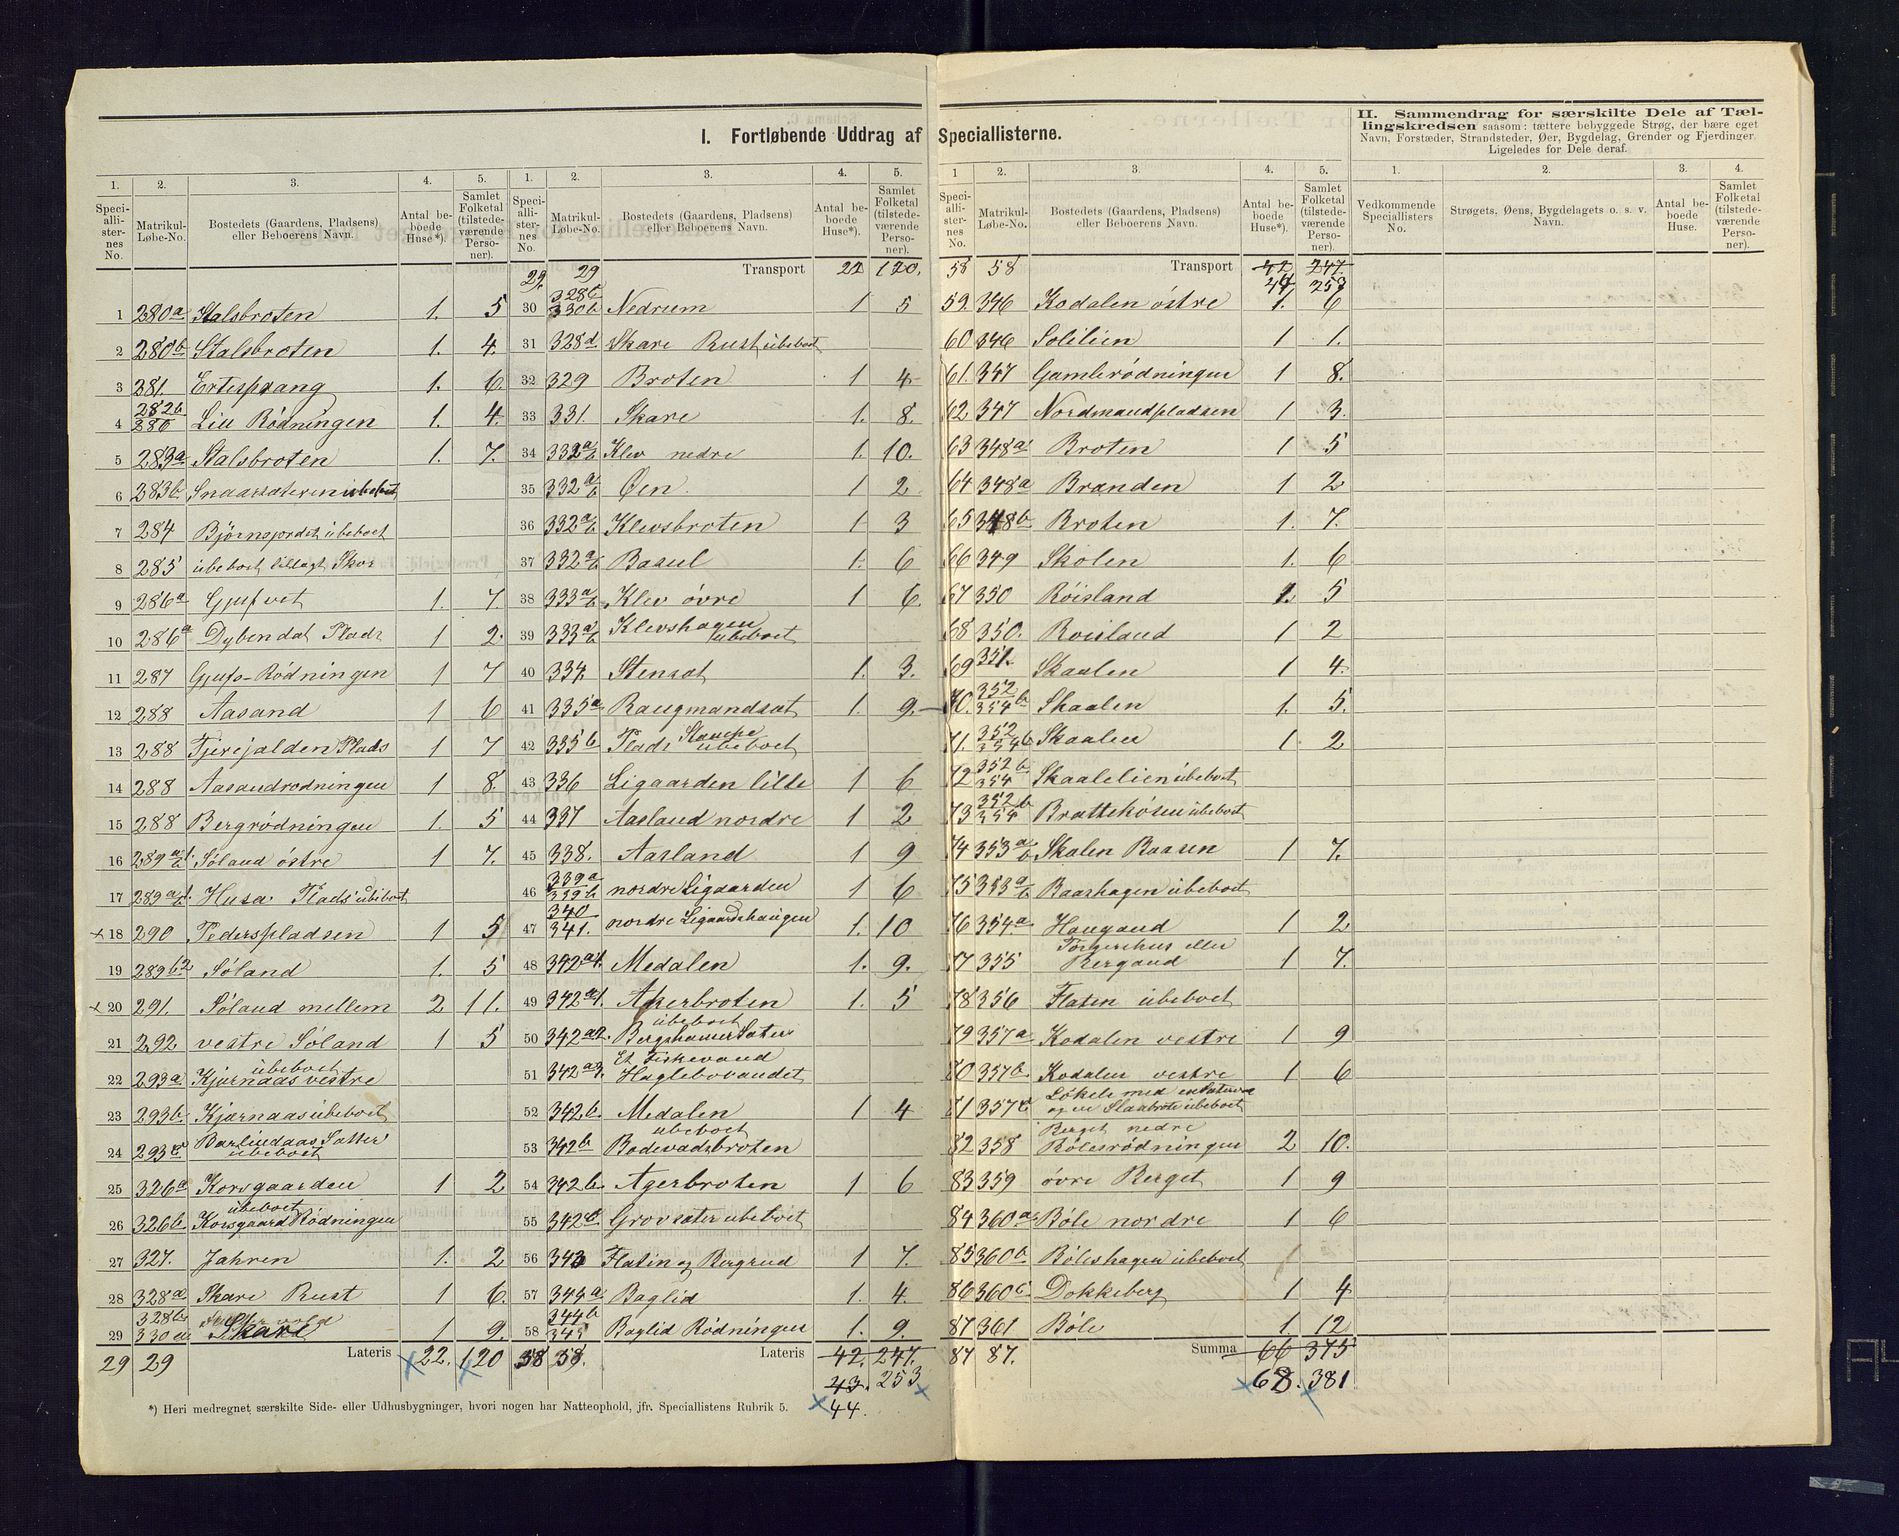 I. Fortløbende Uddrag af Speciallisterne.
II. Sammendrag for særskilte Dele af Tæl-
lingskredsen saasom: tættere bebyggede Strøg, der bære eget
Navn, Forstæder, Strandsteder, Øer, Bygdelag, Grender og Fjerdinger.
Ligeledes for Dele deraf.
1. 2. 3. 4. 5.
Speciallisternes No. Matrikul-Løbe-No. Bostedets (Gaardens, Pladsens) eller Beboerens Navn. Antal beboede Huse*). Samlet Folketal (tilstedeværende Personer).
1 280a Stalsbroten 1. 5
2 280b Stalsbroten 1. 4.
3 281. Ertesprang 1. 6.
4 282b 280 Liu Rødningen 1. 4.
5 283a Stalsbroten 1. 7.
6 283b. Snaarsæteren ubeboet
7 284 Bjørnsjordet ubeboet
8 285 ubeboet tillagt Skov
9 286a Gjufvet 1. 7.
10 286a Dybendal Plads 1 2.
11 287 Gjufs-Rødningen 1 7
12 288 Aasand 1 6
13 288 Tjerejalden Plads 1 7
14 288 Aasandrødningen 1 8.
15 288 Bergrødningen 1. 5
16 289a1. Søland østre 1 7.
17 289a1. Husa. Plads ubeboet
18 290 Pederspladsen 1 5
19 289b2 Søland 1. 5
20 291. Søland mellem 2 11.
21 292 vestre Søland 1 5
22 293a Kjærnaas vestre ubeboet
23 293b. Kjærnaas ubeboet
24 293c Barlindaas Sætter ubeboet
25 326a Korsgaarden 1 2
26 326b. Korsgaard Rødningen ubeboet
27 327. Jahren 1. 2
28 328a Skare Rust 1 6.
29 328b. 330a Skare 1 9.
29 29 Lateris 22. 120
1. 2. 3. 4. 5.
Speciallisternes No. Matrikul-Løbe-No. Bostedets (Gaardens, Pladsens) eller Beboerens Navn. Antal beboede Huse*). Samlet Folketal (tilstedeværende Personer).
29. 29 Transport 22 120.
30 328c 330b Nedrum 1 5
31 328d Skare Rust ubeboet
32 329 Broten 1 4
33 331. Skare 1. 8.
34 332a/b Klev nedre 1. 10.
35 332a/b Øen. 1 2
36 332a/b Klevsbroten 1 3
37 332a/b Basul 1. 6
38 333a/b Klev øvre 1 6.
39 333a/b Klevshagen ubeboet
40 334 Stensæt 1. 3.
41 335a Raugmandsæt 1. 9.
42 335b Plads Stauche ubeboet
43 336 Ligaarden lille 1 6
44 337 Aasland nordre 1 2
45 338. Aasland 1 9
46 339a 339b nordre Ligaarden 1 6
47 340 341. nordre Ligaardshaugen 1. 10
48 342a1. Medalen 1. 9.
49 342a1. Agerbroten 1. 5
50 342a2. Bergshamer Sæter ubeboet
51 342a3. Et Fiskevand Haglebovandet
52 342b. Medalen 1 4
53 342b Bodevadsbroten ubeboet
54 342b. Agerbroten 1 6
55 342c Grovsæter ubeboet
56 343 Flatin og Bergrud 1 7.
57 344a Baglid 1. 4.
58 344b 345 Baglid Rødningen 1. 9.
58 58. Lateris 42. 247.
43. 253
44.
1 2. 3. 4. 5.
Speciallisternes No. Matrikul-Løbe-No. Bostedets (Gaardens, Pladsens) eller Beboerens Navn. Antal beboede Huse*). Samlet Folketal (tilstedeværende Personer).
58 58 Transport 42 247.
44 253
59. 346 Kodalen østre 1. 6
60 346 Solilien 1 1.
61. 347 Gamlerødningen 1 8.
62 347 Nordmandpladsen 1 3.
63 348a Broten 1 5
64 348a Brænden 1 2
65 348b Broten 1. 7.
66 349 Skolen 1. 6
67 350 Røisland 1. 5
68 350. Roisland 1 2
69 351. Skaalen 1 4.
70. 352 354b Skaalen 1. 5.
71. 352 354b Skaalen 1 2
72 352b 354 Skaalelien ubeboet
73 352b 354 Brattehøsen ubeboet
74 353a/b Skalen Baasen 1 7.
75 353a/b Baashagen ubeboet
76 354a Haugand 1 2
77 355 Torgershus eller Bergand 1 7.
78 356 Flaten ubeboet
79 357a Kodalen vestre 1 9
80 357b. Kodalen vestre 1 6
81 357c Løkele med en Sæter og en ubeboet
82 358 Berget nedre Bølesrødningen 2 10.
83 359 øvre Berget 1 9
84 360a Bøle nordre 1 6
85 360b. Bøleshagen ubeboet
86 360c. Dokkeberg 1 4
87 361 Bøle 1 12
87 87. Summa 66 375
68. 381
1. 2. 3. 4.
Vedkommende Speciallisters No. Strøgets, Øens, Bygdelagets o. s. v. Navn. Antal beboede Huse. Samlet Folketal (tilstedeværende Personer).
*) Heri medregnet særskilte Side- eller Udhusbygninger, hvori nogen har Natteophold, jfr. Speciallistens Rubrik 5.